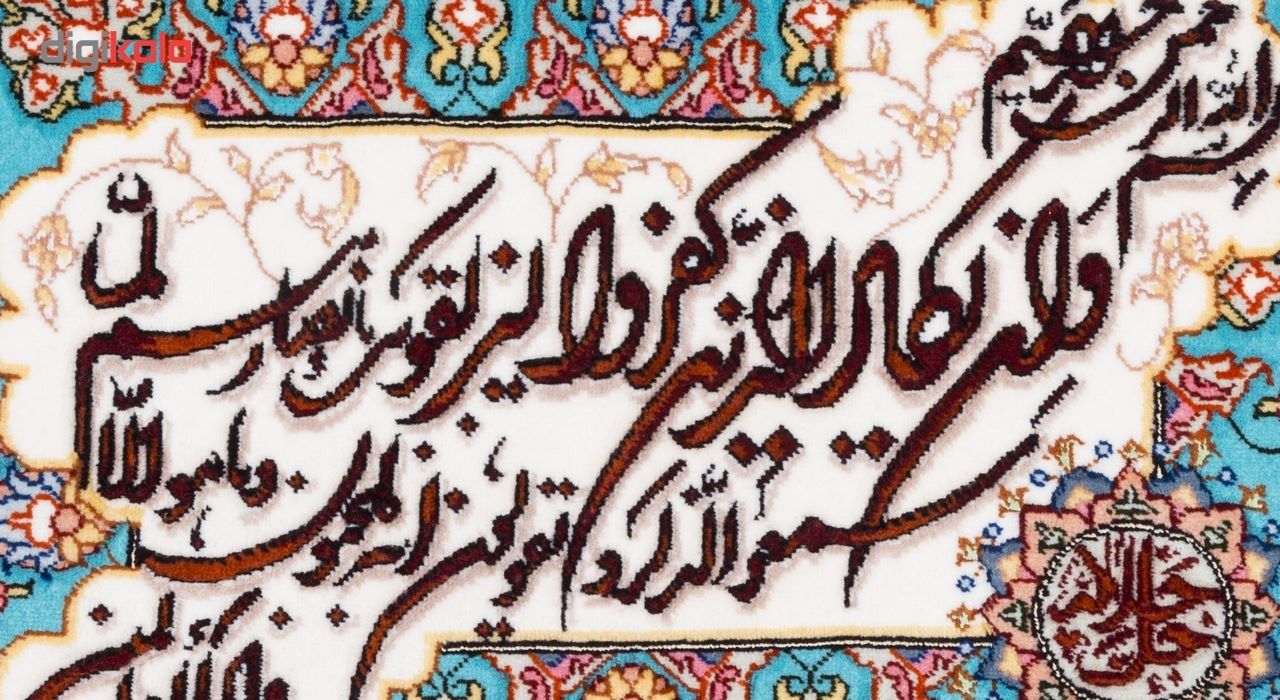 digikala
بسم الله الرحمن الرحیم
وان یکاد الذین کفروا لیزلقونک بابصارهم لما
سمعوا الذکر و یقولون انه لمجنون و ما هو الا
ذکر للعالمین